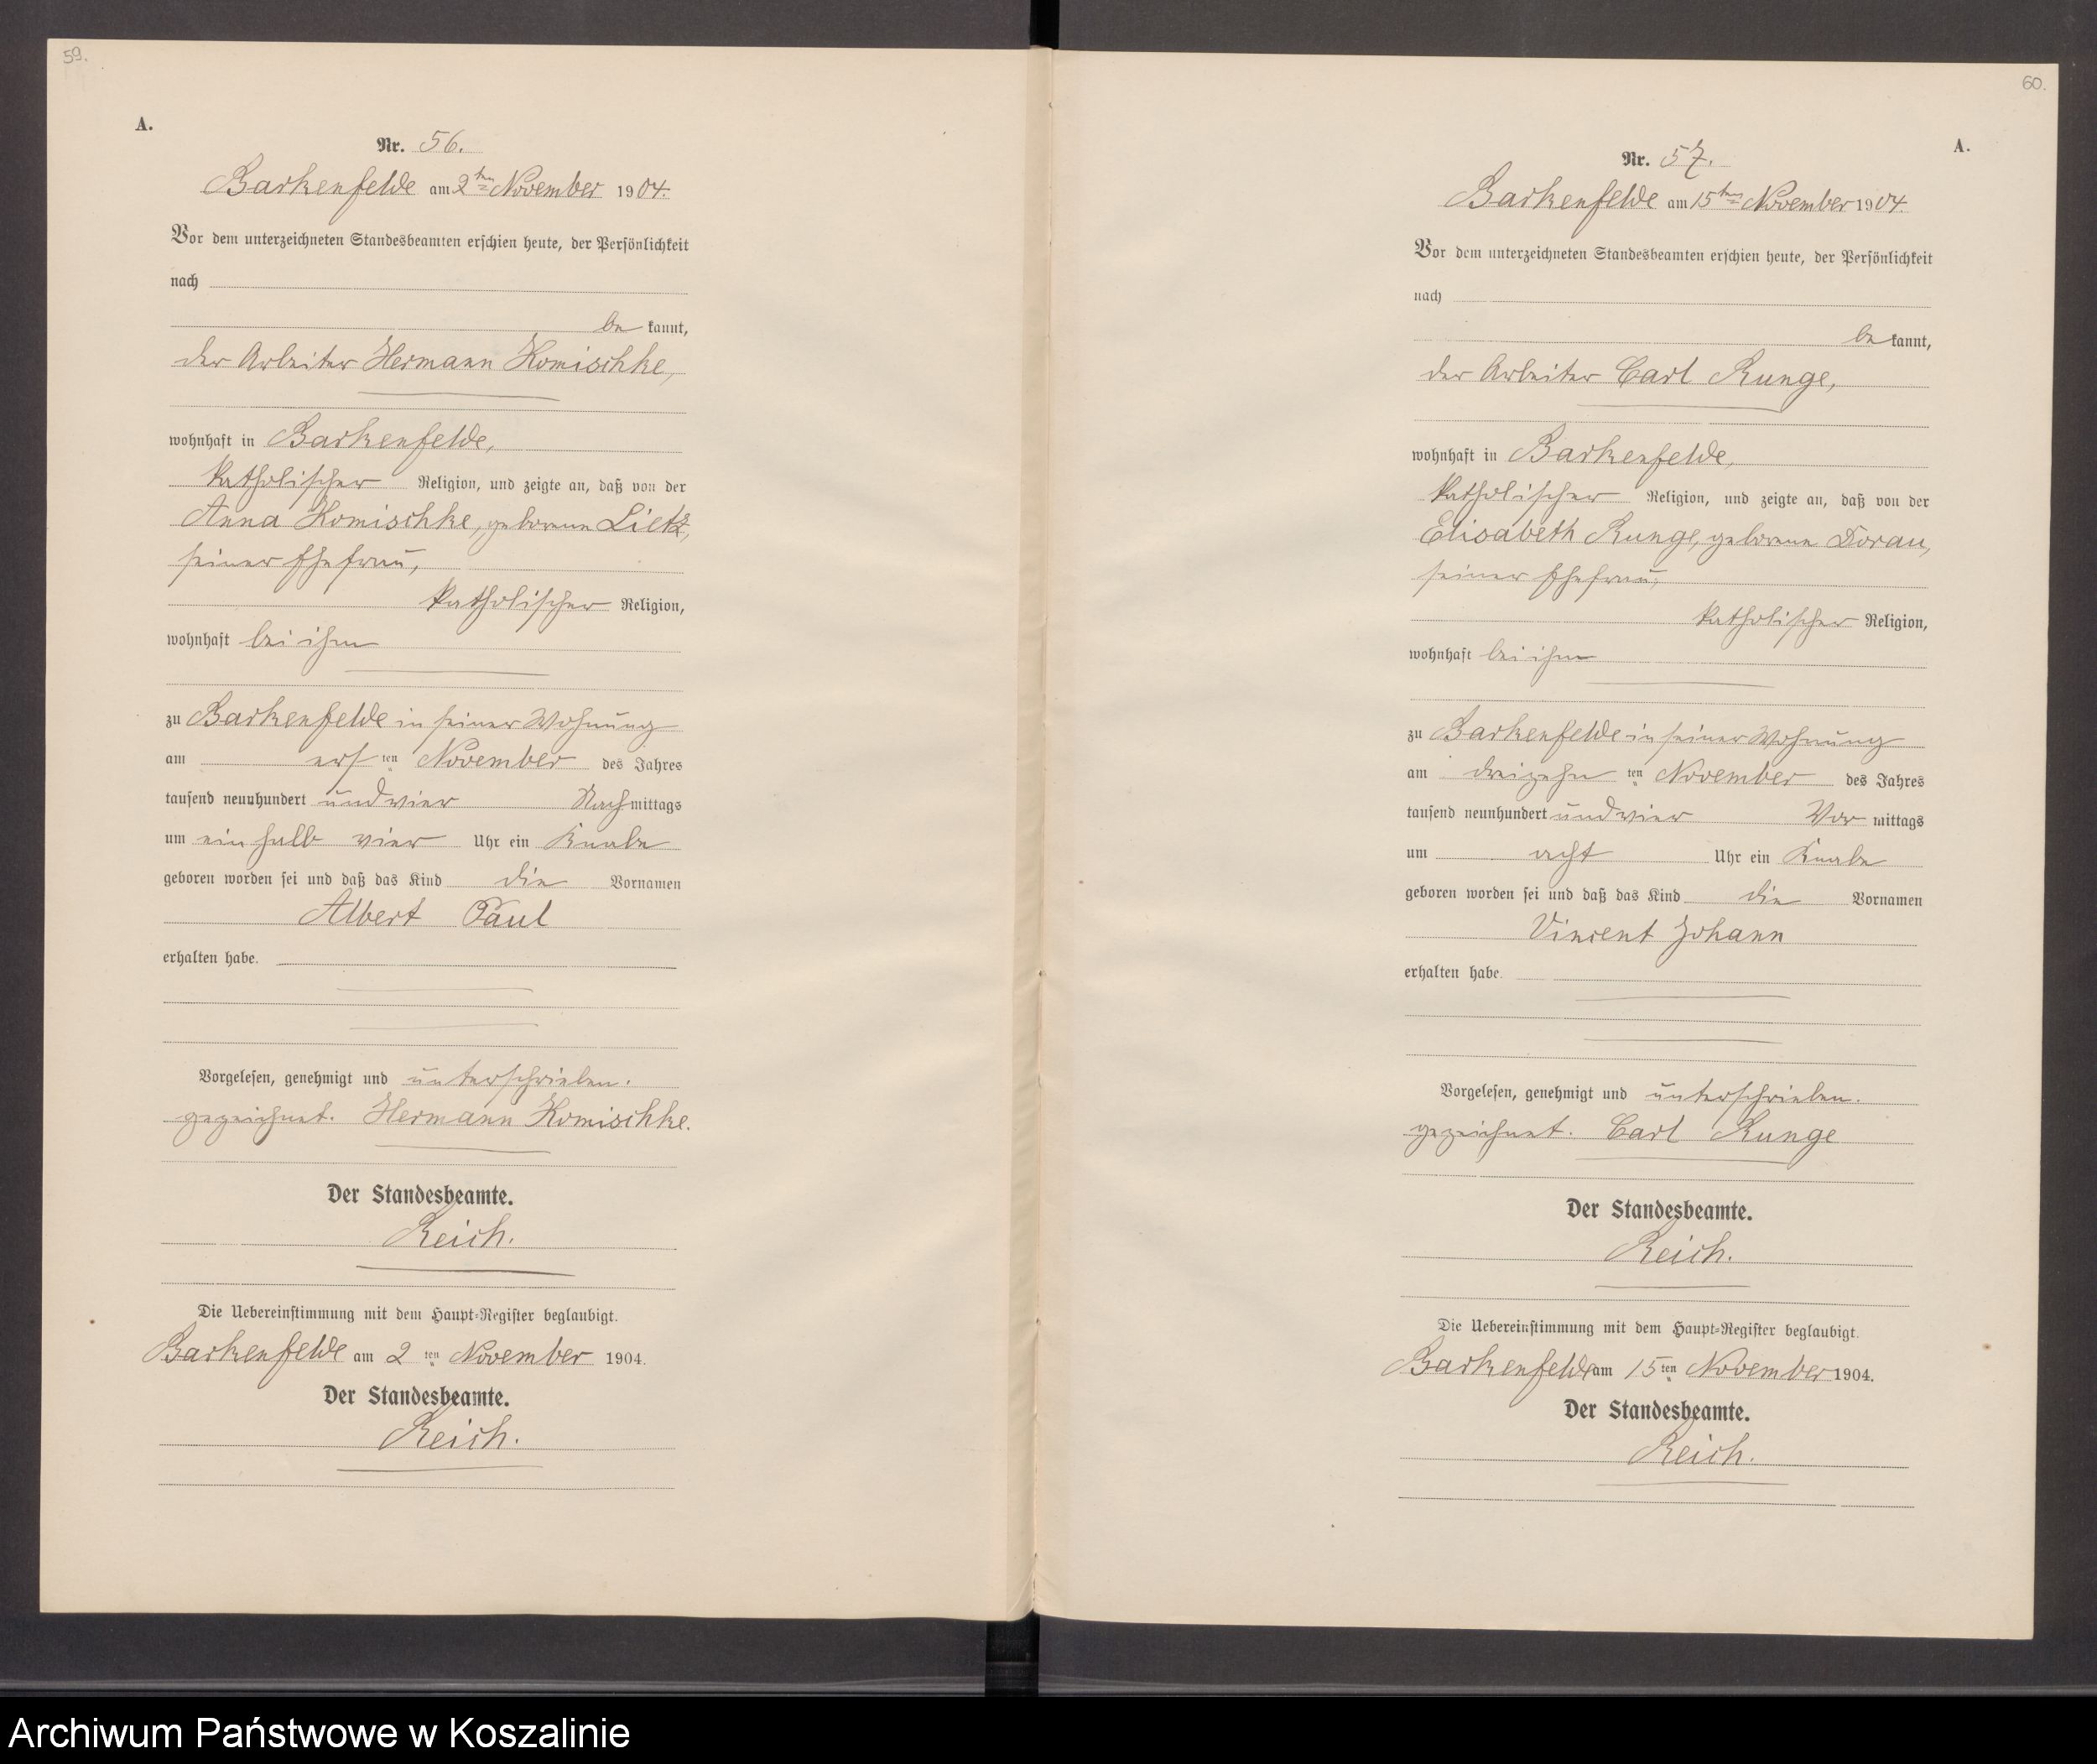 59.
A.
Nr. 56.
Barkenfelde am 2ten November 1904.
Vor dem unterzeichneten Standesbeamten erschien heute, der Persönlichkeit
nach
be kannt,
der Arbeiter Hermann Komischke,
wohnhaft in Barkenfelde,
katholischer Religion, und zeigte an, daß von der
Anna Komischke, geborene Lietz,
seiner Ehefrau,
katholischer Religion,
wohnhaft bei ihm
zu Barkenfelde in seiner Wohnung
am ersten November des Jahres
tausend neunhundert und vier Nachmittags
um ein halb vier Uhr ein Knabe
geboren worden sei und daß das Kind die Vornamen
Albert Paul
erhalten habe.
Vorgelesen, genehmigt und unterschrieben.
gezeichnet. Hermann Komischke.
Der Standesbeamte.
Reich.
Die Uebereinstimmung mit dem Haupt-Register beglaubigt.
Barkenfelde am 2 ten November 1904.
Der Standesbeamte.
Reich.
60.
A.
Nr. 57.
Barkenfelde am 15ten November 1904.
Vor dem unterzeichneten Standesbeamten erschien heute, der Persönlichkeit
nach
be kannt,
der Arbeiter Carl Runge,
wohnhaft in Barkenfelde,
katholischer Religion, und zeigte an, daß von der
Elisabeth Runge, geborene Dorau,
seiner Ehefrau,
katholischer Religion,
wohnhaft bei ihm
zu Barkenfelde in seiner Wohnung
am dreizehn ten November des Jahres
tausend neunhundert und vier Vor mittags
um acht Uhr ein Knabe
geboren worden sei und daß das Kind die Vornamen
Vincent Johann
erhalten habe.
Vorgelesen, genehmigt und unterschrieben.
gezeichnet. Carl Runge
Der Standesbeamte.
Reich.
Die Uebereinstimmung mit dem Haupt-Register beglaubigt.
Barkenfelde am 15ten November 1904.
Der Standesbeamte.
Reich.
Archiwum Państwowe w Koszalinie